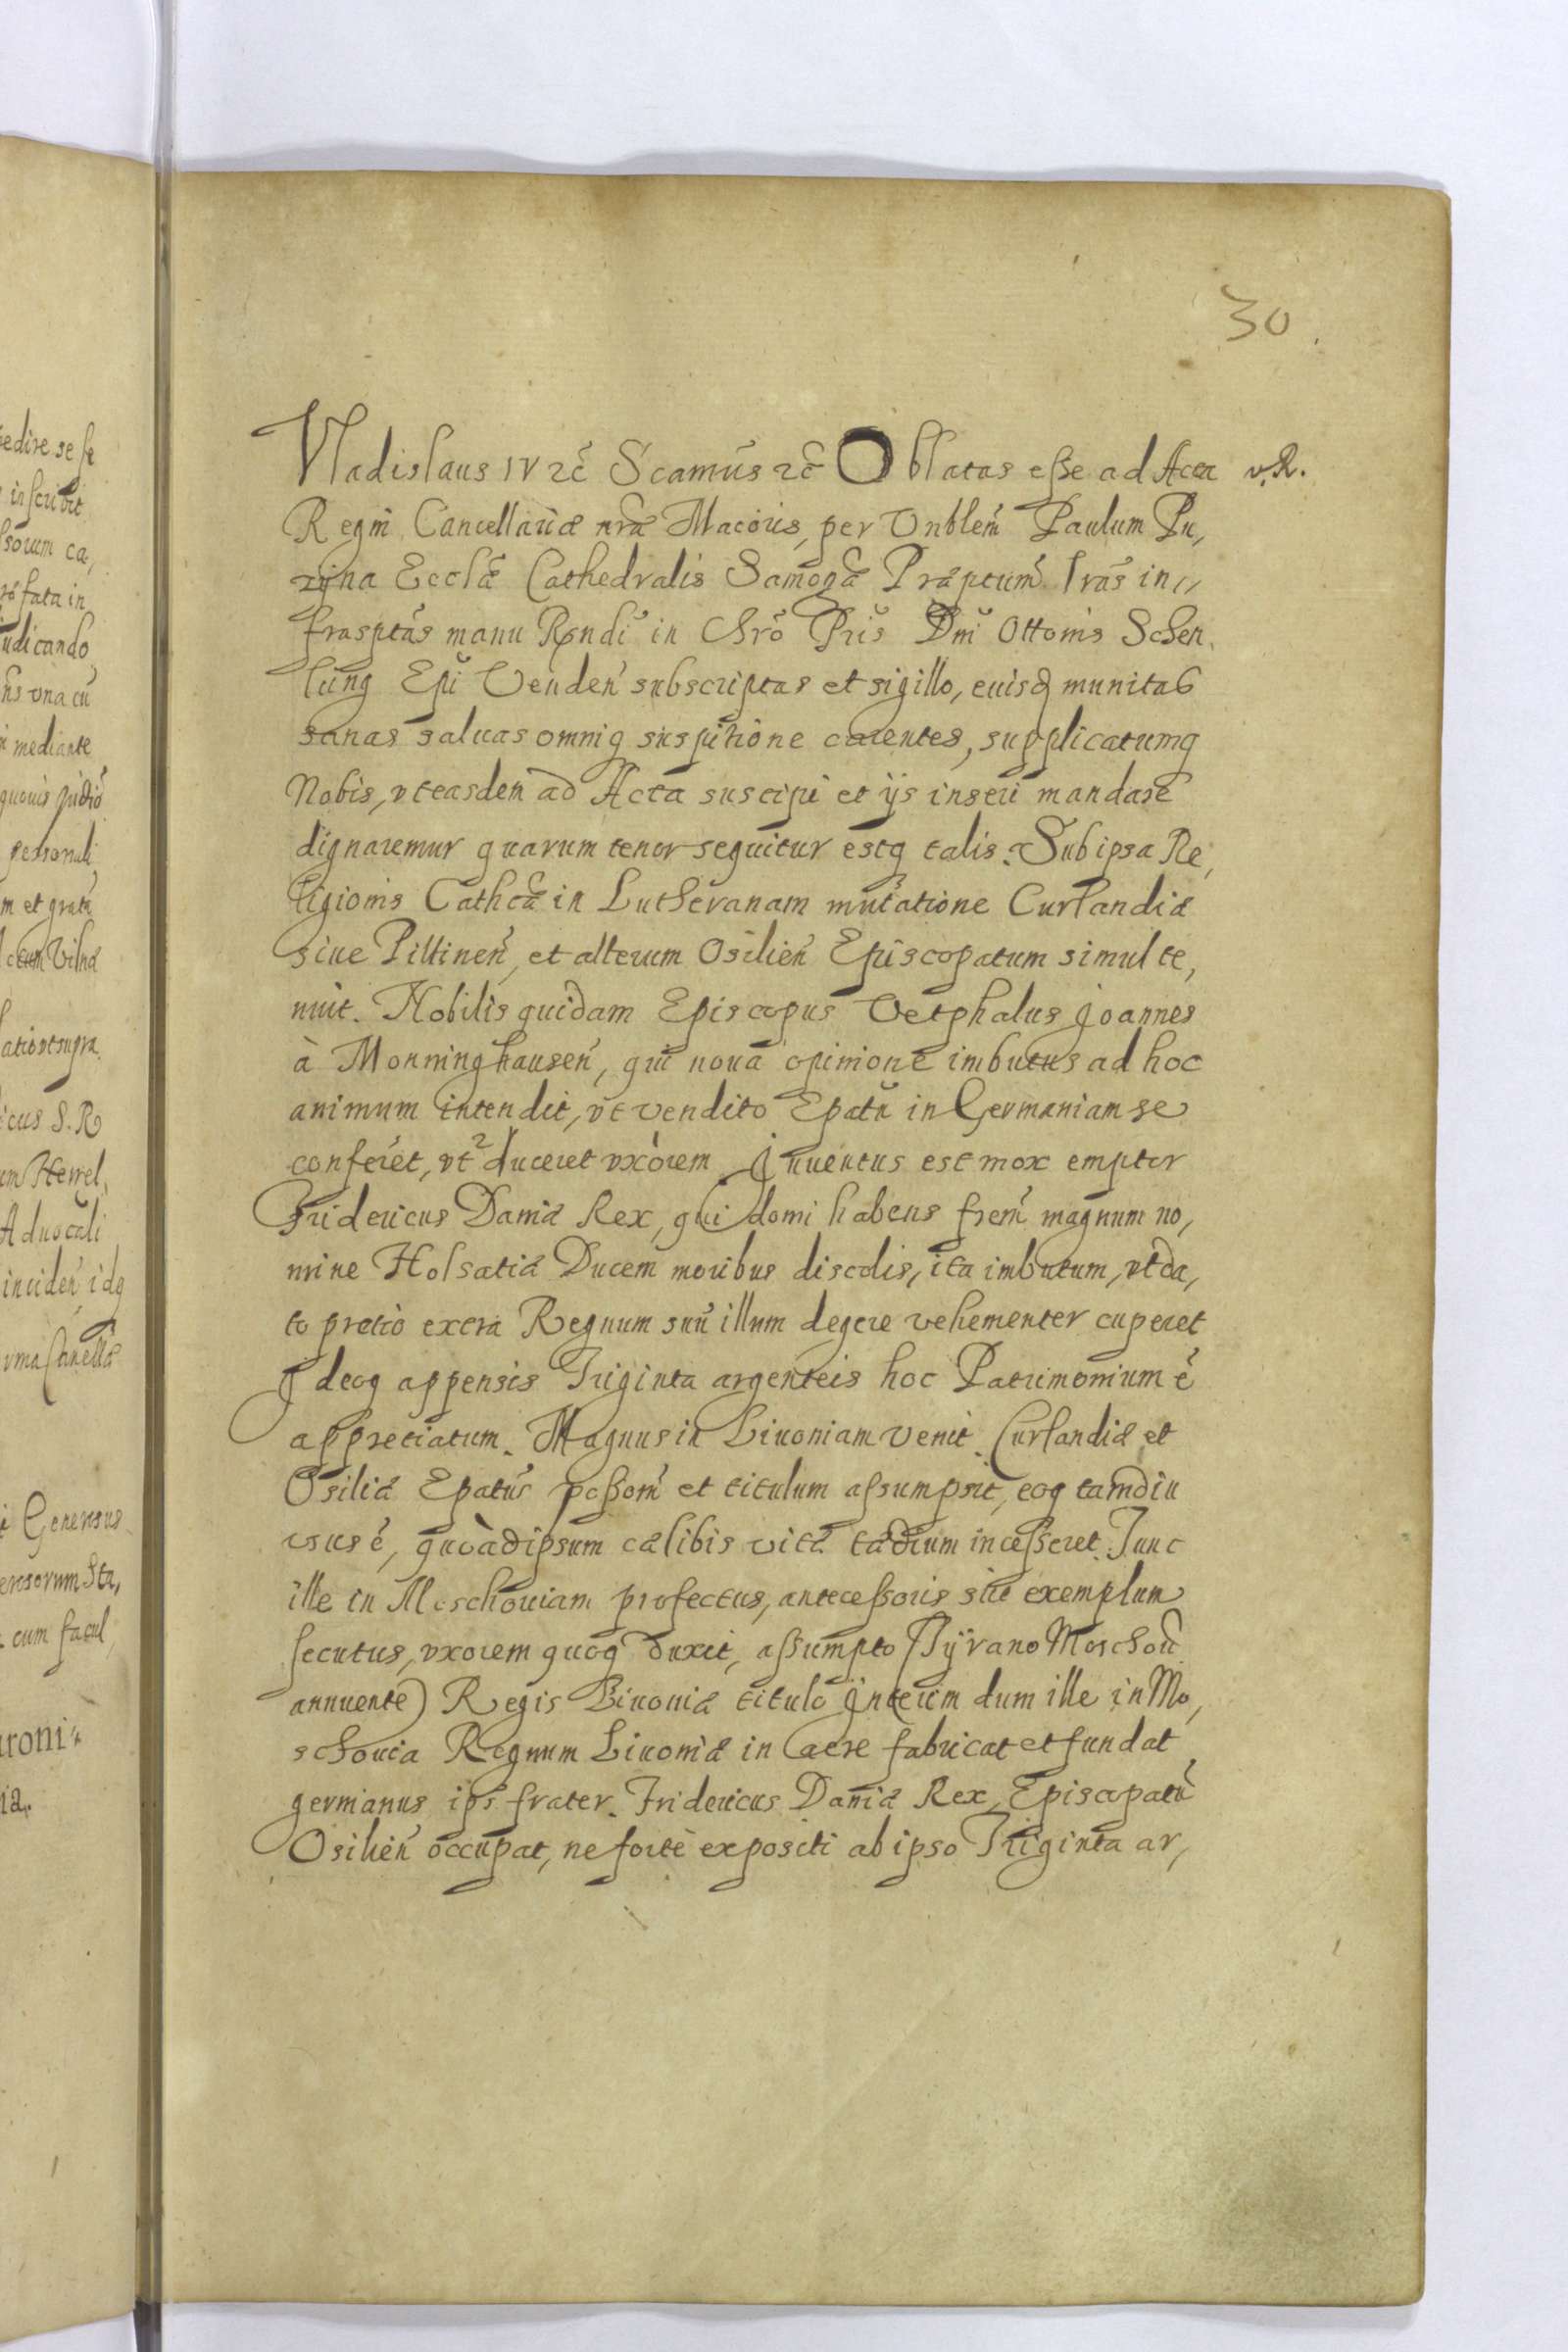 30
Vladislaus IV &c̃ Scamũs &c̃ Oblatas esse ad Acta v. R.
Regni Cancellariæ nr̃æ Maioris, per Vnblem̃ Paulum Pu,
zÿna Ecclæ̃ Cathedralis Samogæ̃ Præptum̃ lr̃as in
frasptãs manu Rẽndi in Chrõ Pr̃is Dm̃ Ottonis Schen,
kũng Epĩ Venden̄ subscriptas et sigillo, euisq munitas
sanas saluas omniq suspitione carentes, supplicatumq
Nobis, vt easdem̃ ad Acta suscipi et ijs inseri mandare
dignaremur quarum tenor sequitur estq talis. Sub ipsa Re,
ligionis Cathcæ̃ in Lutheranam mutatione Curlandiæ
siue Piltinen̄, et alterum Osilien̄ Episcopatum simul te,
nuit. Nobilis quidam Episcopus Vetphalus Joannes
à Monninghausen̄, qui noua opinione imbutus ad hoc
animum intendit, vt vendito Epatũ in Germaniam se
conferet, vt duceret vxòrem. Inuentus est mox emptor
Fridericus Daniæ Rex, qui domi habens frem̃ magnum no,
mine Holsatiæ Ducem moribus discolis, ita imbutum, vt da,
to pretiò extra Regnum suũ illum degere vehementer cuperet
Ideoq appensis Triginta argenteis hoc Patrimonium ẽ
appretiatum. Magnus in Liuoniam venit. Curlandiæ et
Osiliæ Epatũs possom̃ et titulum assumpsit, eoq tamdiu
vsus ẽ, quòad ipsum cælibis vitæ tædium incesseret. Tunc
ille in Moschouiam profectus, antecessoris sui exemplum
secutus, vxorem quoq duxit, assumpto (Tÿrano Moschoũ
annuente) Regis Liuoniæ titulo Interim dum ille in Mo,
schouia Regnum Liuoniæ in aere fabricat et fundat
germanus ips̃ frater. Fridericus Daniæ Rex, Episcopatũ
Osilien̄ occupat, ne fortè expositi ab ipso Triginta ar,